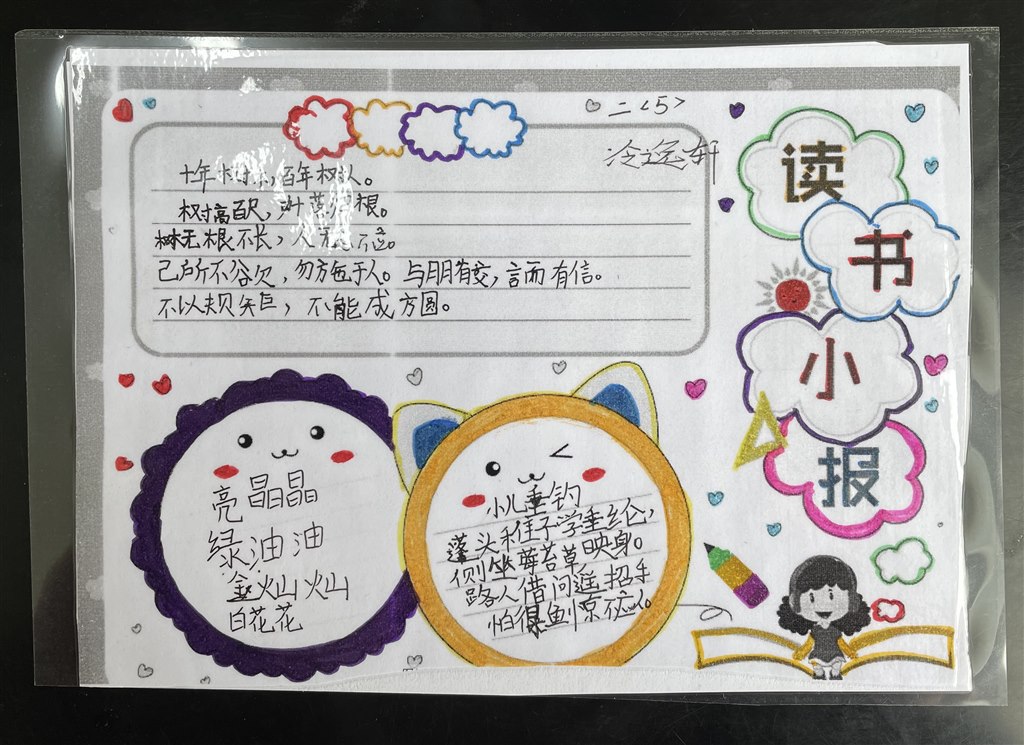 二<5>
冷逸轩
读
书
小
报
十年树木,百年树人。
树高百尺,叶落归根。
树无根不长,人无志不立。
己所不欲,勿施于人。与朋友交,言而有信。
不以规矩,不能成方圆。
亮晶晶
绿油油
金灿灿
白花花
小儿垂钓
蓬头稚子学垂纶,
侧坐莓苔草映身。
路人借问遥招手
怕得鱼惊不应人。